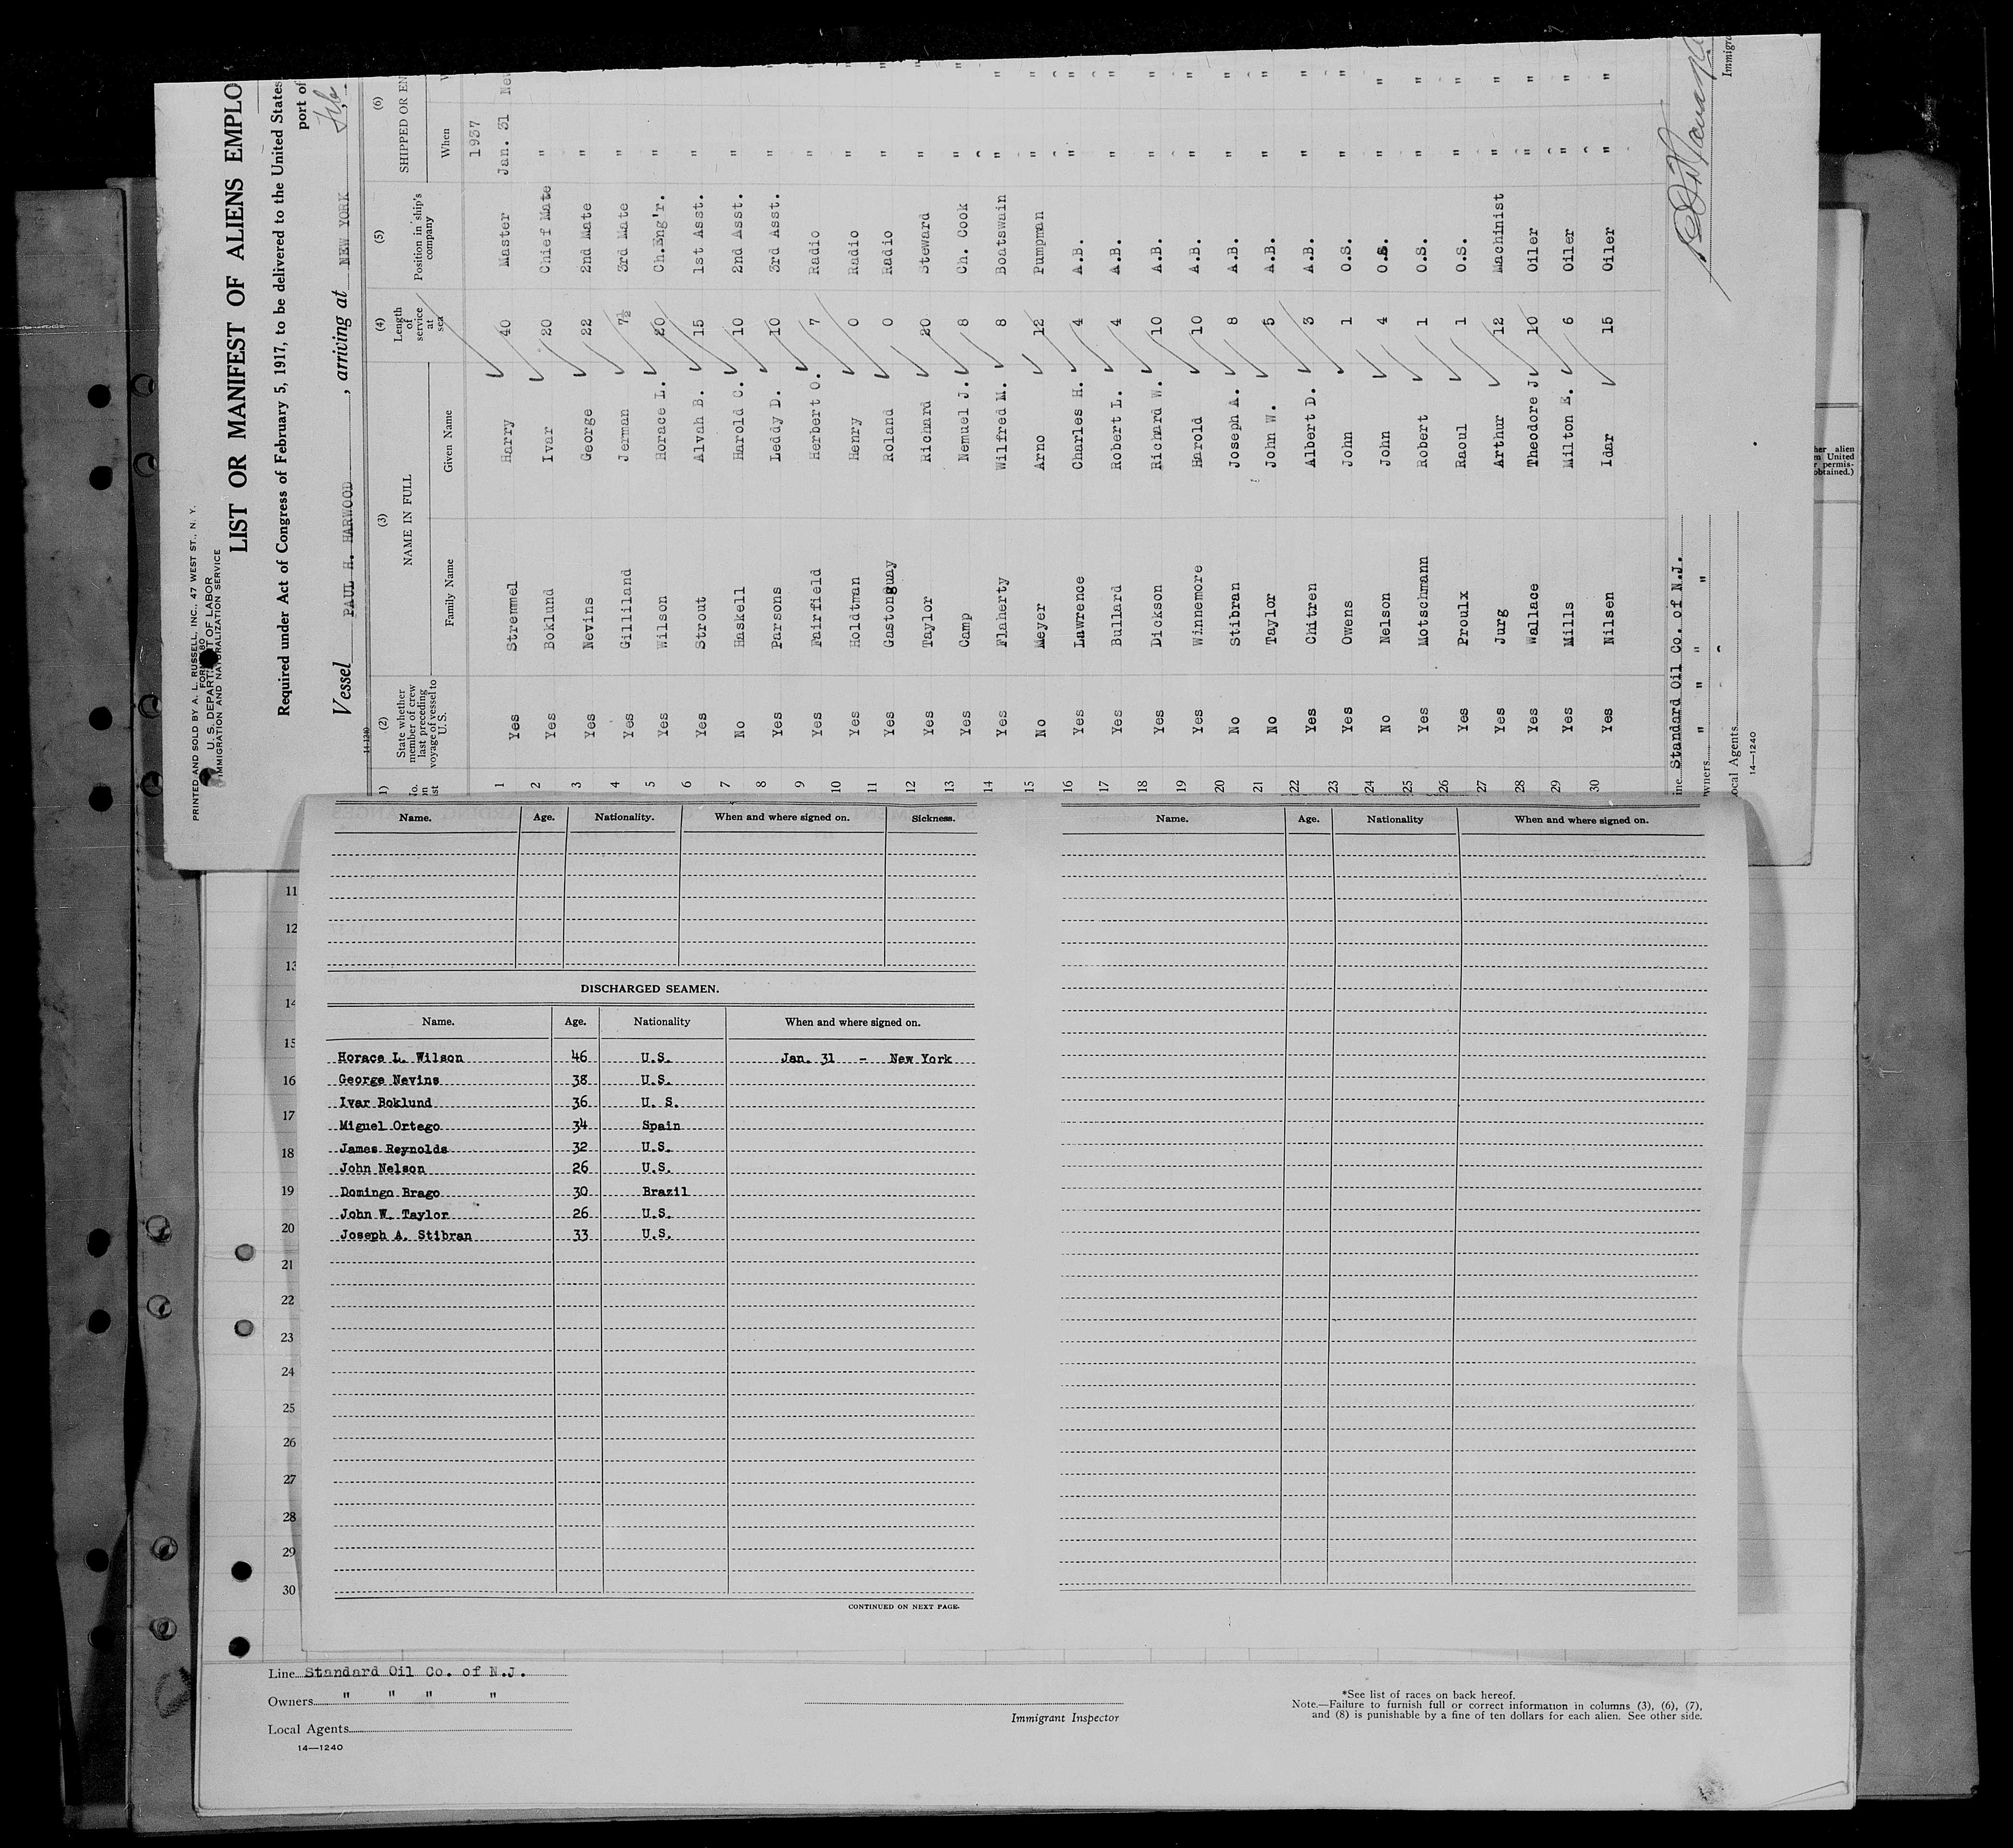 PRINTED AND SOLD BY A. L. RUSSELL, INC., 47 WEST ST., N. Y.
FORM 680
U. S. DEPARTMENT OF LABOR
IMMIGRATION AND NATURALIZATION SERVICE
LIST OR MANIFEST OF ALIENS EMPLO
Required under Act of Congress of February 5, 1917, to be delivered to the United States
port of
Vessel PAUL H. HARWOOD, arriving at NEW YORK Feb
14-1240
(2) (3) (4) (5) (6)
State whether member of crew last preceding voyage of vessel to U. S. NAME IN FULL Length of service at sea Position in ship's company SHIPPED OR EN
Family Name Given Name When
1937
1 Yes Stremmel Harry 40 Master Jan. 31 New
2 Yes Boklund Ivar 20 Chief Mate " "
3 Yes Nevins George 22 2nd Mate " "
4 Yes Gilliland Jerman 7½ 3rd Mate " "
5 Yes Wilson Horace L. 20 Ch.Eng'r. " "
6 Yes Strout Alvah B. 15 1st Asst. " "
7 No Haskell Harold C. 10 2nd Asst. " "
8 Yes Parsons Leddy D. 10 3rd Asst. " "
9 Yes Fairfield Herbert O. 7 Radio " "
10 Yes Holdtman Henry 0 Radio " "
11 Yes Gastonguay Roland 0 Radio " "
12 Yes Taylor Richard 20 Steward " "
13 Yes Camp Nemuel J. 8 Ch. Cook " "
14 Yes Flaherty Wilfred M. 8 Boatswain " "
15 No Meyer Arno 12 Pumpman " "
16 Yes Lawrence Charles H. 4 A.B. " "
17 Yes Bullard Robert L. 4 A.B. " "
18 Yes Dickson Richard W. 10 A.B. " "
19 Yes Winnemore Harold 10 A.B. " "
20 No Stibran Joseph A. 8 A.B. " "
21 No Taylor John W. 5 A.B. " "
22 Yes Chitren Albert D. 3 A.B. " "
23 Yes Owens John 1 O.S. " "
24 No Nelson John 4 O.S. " "
25 Yes Motschmann Robert 1 O.S. " "
26 Yes Proulx Raoul 1 O.S. " "
27 Yes Jurg Arthur 12 Machinist " "
28 Yes Wallace Theodore J. 10 Oiler " "
29 Yes Mills Milton E. 6 Oiler " "
30 Yes Nilsen Idar 15 Oiler " "
ine Standard Oil Co. of N.J.
wners " " " "
ocal Agents
14—1240
Immigra
her alien
en United
r permis-
obtained.)
Name. Age. Nationality. When and where signed on. Sickness.
DISCHARGED SEAMEN.
Name. Age. Nationality When and where signed on.
Horace L. Wilson 46 U.S. Jan. 31 - New York
George Nevins 38 U.S.
Ivar Boklund 36 U. S.
Miguel Ortego 34 Spain
James Reynolds 32 U.S.
John Nelson 26 U.S.
Domingo Brago 30 Brazil
John W. Taylor 26 U.S.
Joseph A. Stibran 33 U.S.
CONTINUED ON NEXT PAGE.
Name. Age. Nationality When and where signed on.
11
12
13
14
15
16
17
18
19
20
21
22
23
24
25
26
27
28
29
30
Line Standard Oil Co. of N.J.
Owners " " " "
Local Agents
14—1240
Immigrant Inspector
*See list of races on back hereof.
Note.—Failure to furnish full or correct information in columns (3), (6), (7),
and (8) is punishable by a fine of ten dollars for each alien. See other side.